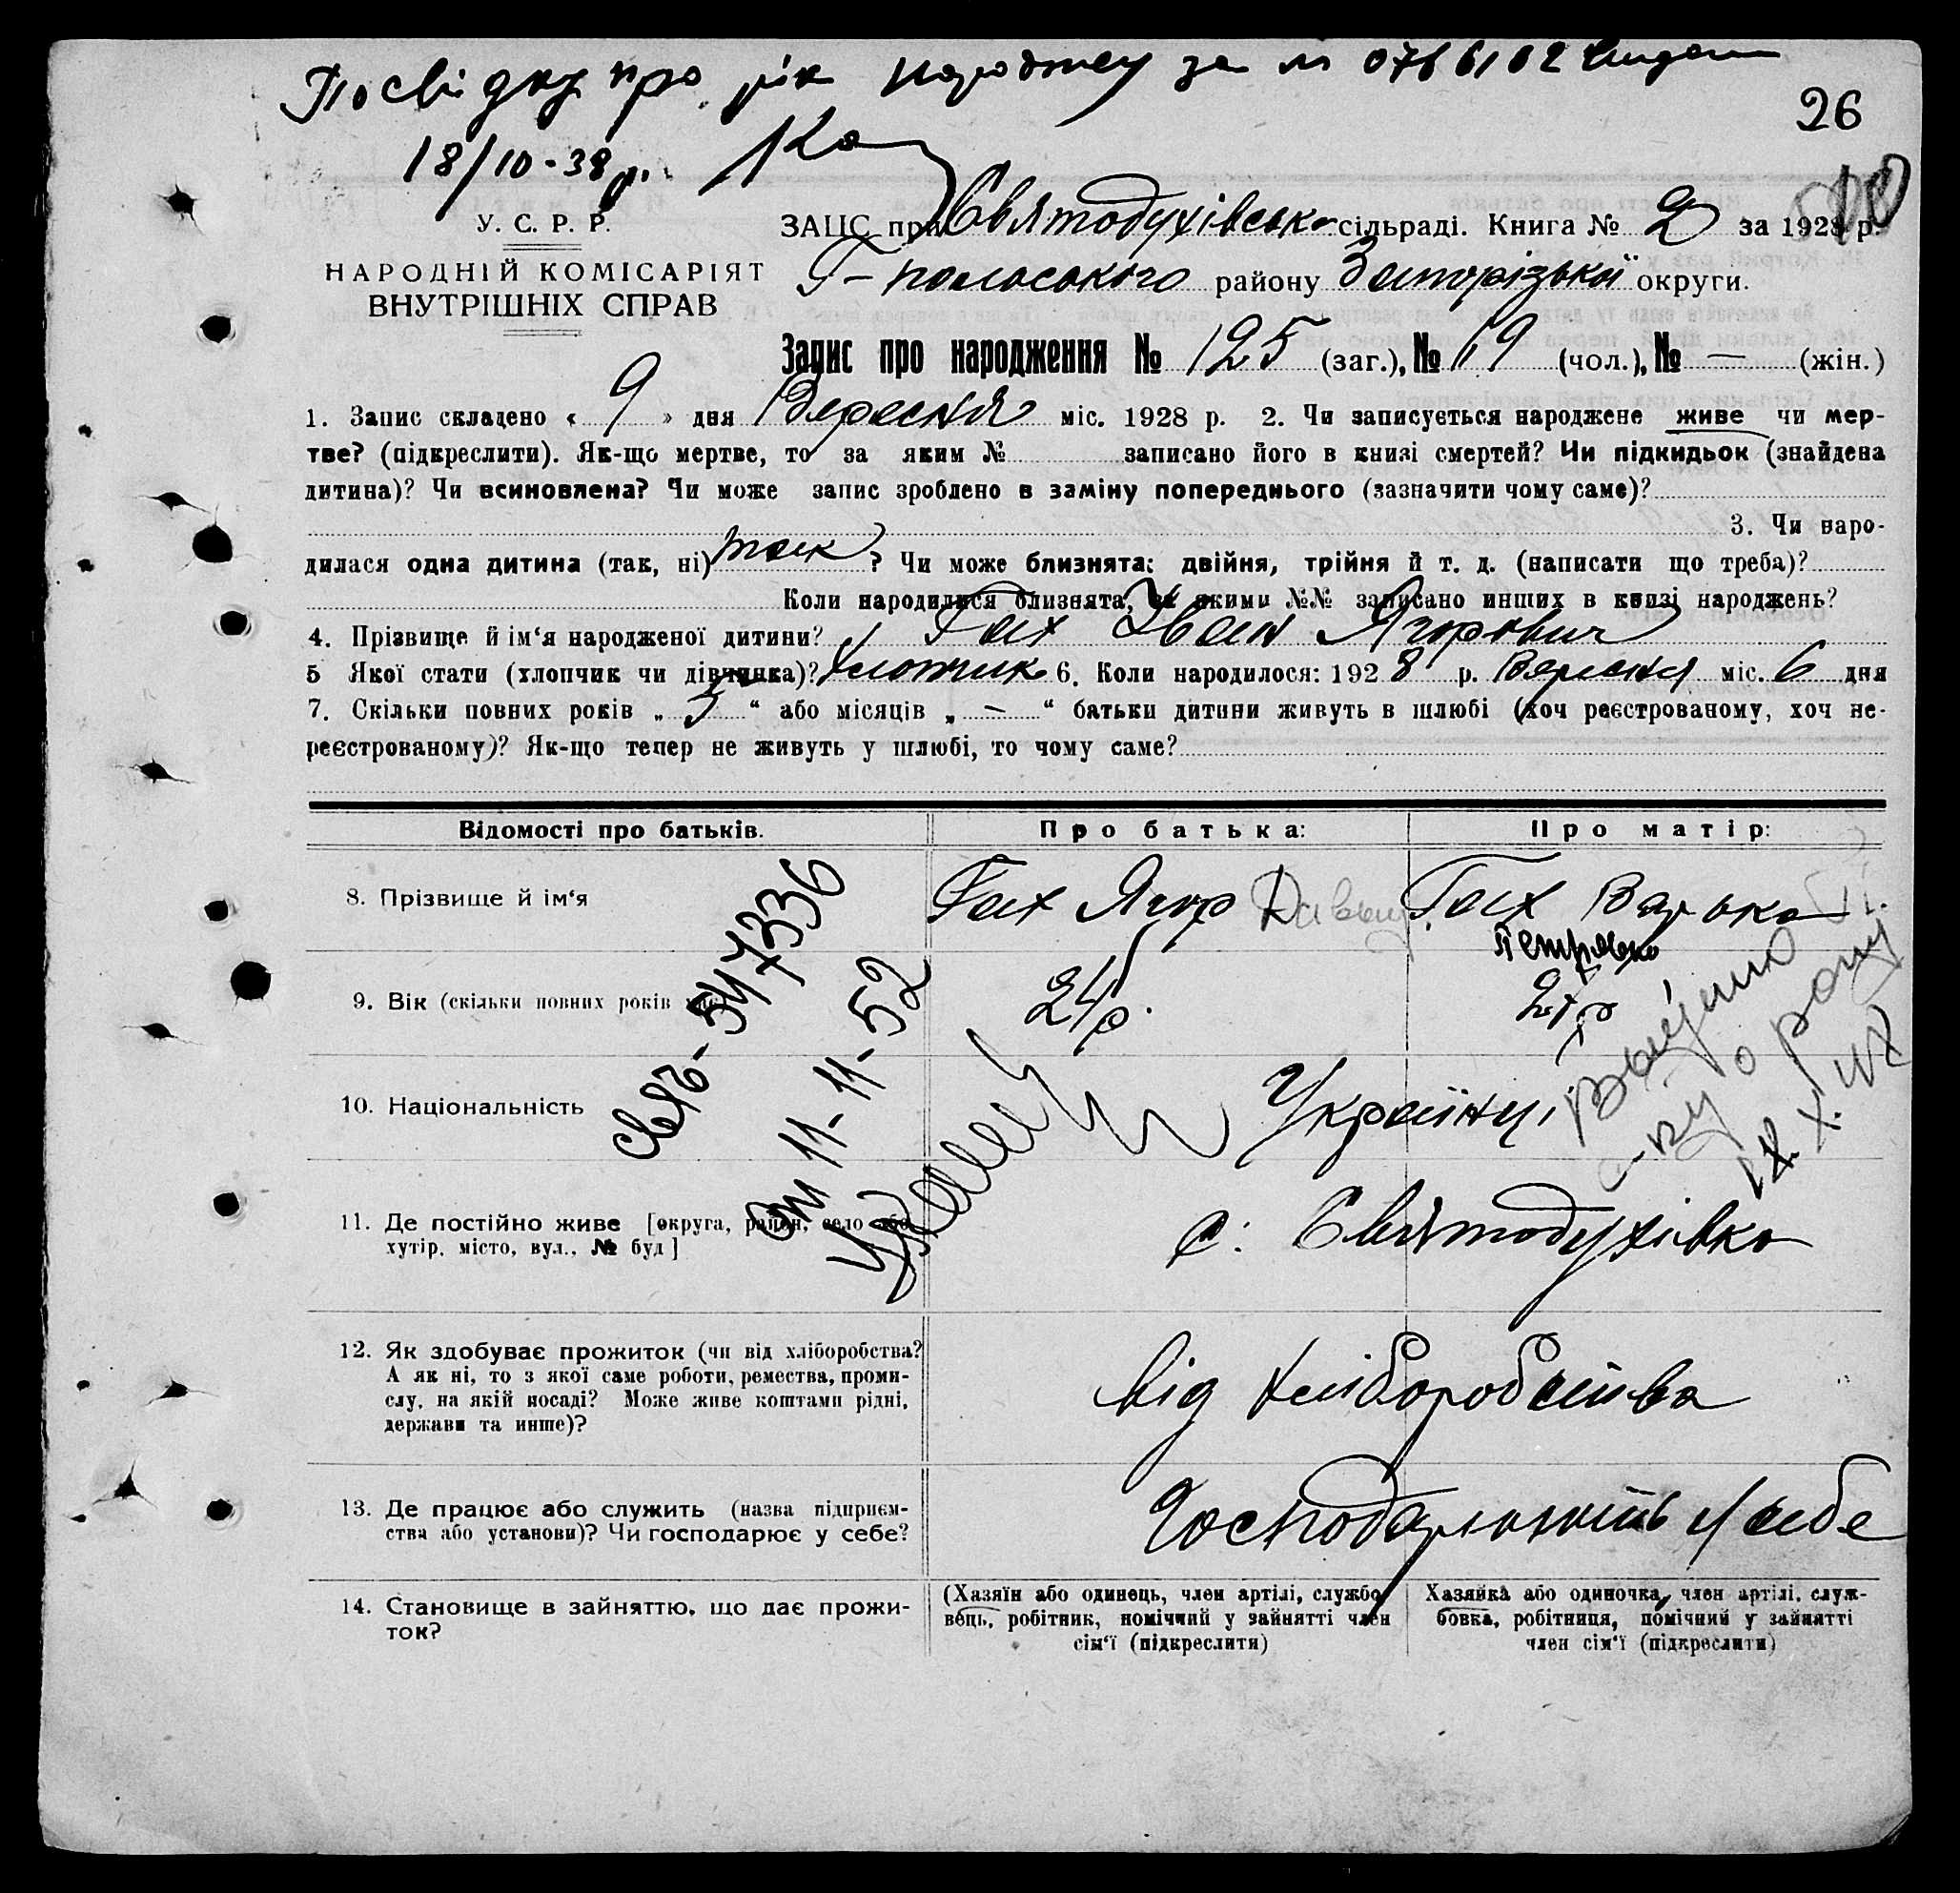 Посвідку про рік народжен за № 0766102 видан
26
18/10-38 р.
У. С. Р. Р.
НАРОДНІЙ КОМІСАРІЯТ
ВНУТРІШНІХ СПРАВ
ЗАЦС при Святодухівськ сільраді. Книга № 2 за 1928 р.
Г-польського району Запорізької округи.
Запис про народження № 125 (заг.), № 19 (чол.), № — (жін.)
1. Запис складено « 9 » дня Вересня міс. 1928 р. 2. Чи записується народжене живе чи мер-
тве? (підкреслити). Як-що мертве, то за яким № записано його в книзі смертей? Чи підкидьок (знайдена
дитина)? Чи всиновлена? Чи може запис зроблено в заміну попереднього (зазначити чому саме)?
3. Чи наро-
дилася одна дитина (так, ні) так ? Чи може близнята: двійня, трійня й т. д. (написати що треба)?
Коли народилися близнята, за якими №№ записано инших в книзі народжень?
4. Прізвище й ім‘я народженої дитини? Гах Іван Ягорович
5 Якої стати (хлопчик чи дівчинка)? Хлопчик 6. Коли народилося: 1928 р. Вересня міс. 6 дня
7. Скільки повних років „ 5 “ або місяців „ — “ батьки дитини живуть в шлюбі (хоч реєстрованому, хоч не-
реєстрованому)? Як-що тепер не живуть у шлюбі, то чому саме?
Відомості про батьків. Про батька: Про матір:
8. Прізвище й ім‘я Гах Ягор Давыд Гах Варька
Петровна
9. Вік (скільки повних років має) 24 р. 24 р
10. Національність Українці
11. Де постійно живе [округа, район, село або
хутір, місто, вул., № буд] с. Святодухівка
12. Як здобуває прожиток (чи від хліборобства?
А як ні, то з якої саме роботи, ремества, проми-
слу, на якій посаді? Може живе коштами рідні,
держави та инше)? від хліборобства
13. Де працює або служить (назва підприєм-
ства або установи)? Чи господарює у себе? Господарюють у себе
14. Становище в зайняттю, що дає прожи-
ток?
(Хазяїн або одинець, член артілі, службо-
вець, робітник, помічний у зайнятті член
сім‘ї (підкреслити)
Хазяйка або одиночка, член артілі, служ-
бовка, робітниця, помічний у зайнятті
член сім‘ї (підкреслити)
547336
от 11-11-52
X. 47